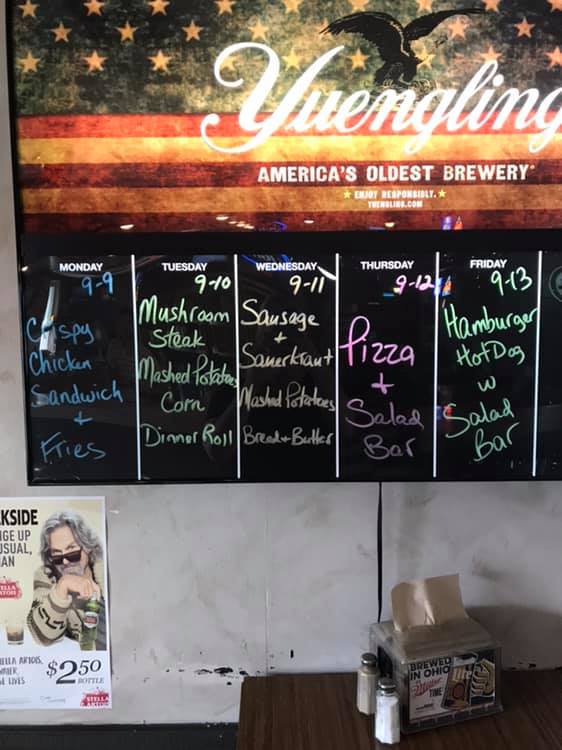 Yuengling
AMERICA'S OLDEST BREWERY
ENJOY RESPONSIBLY.
YUENGLING.COM
MONDAY
9-9
Crispy
Chicken
Sandwich
+
Fries
TUESDAY
9-10
Mushroom
Steak
Mashed Potatoes
Corn
Dinner Roll
WEDNESDAY
9-11
Sausage
+
Sauerkraut
Mashed Potatoes
Bread+Butter
THURSDAY
9-12
Pizza
+
Salad
Bar
FRIDAY
9-13
Hamburger
Hot Dog
w
Salad
Bar
KSIDE
GE UP
SUAL,
AN
STELLA
ARTOIS
$2.50
BOTTLE
STELLA
ARTOIS
BREWED
IN OHIO
Miller
TIME